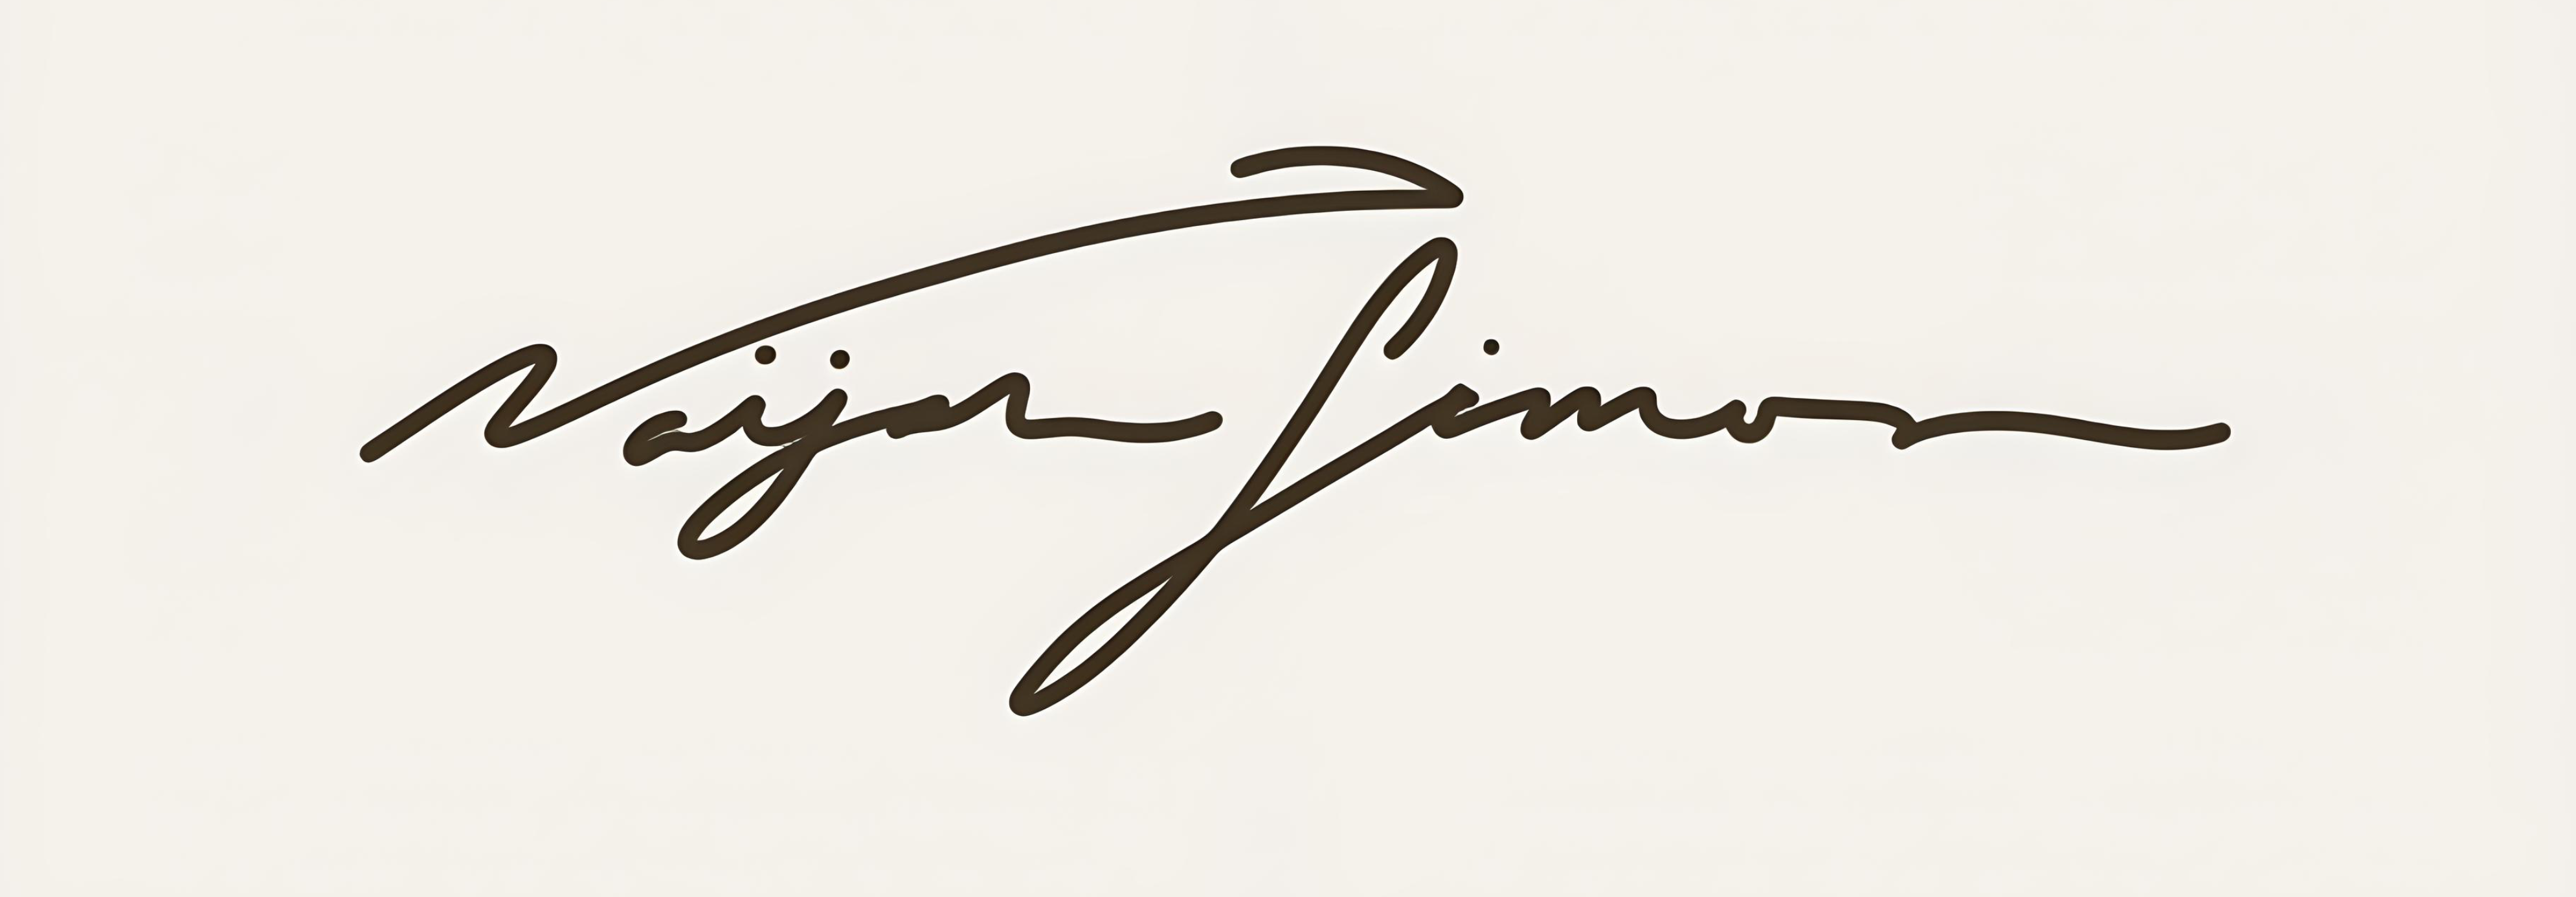 Naijan Simon